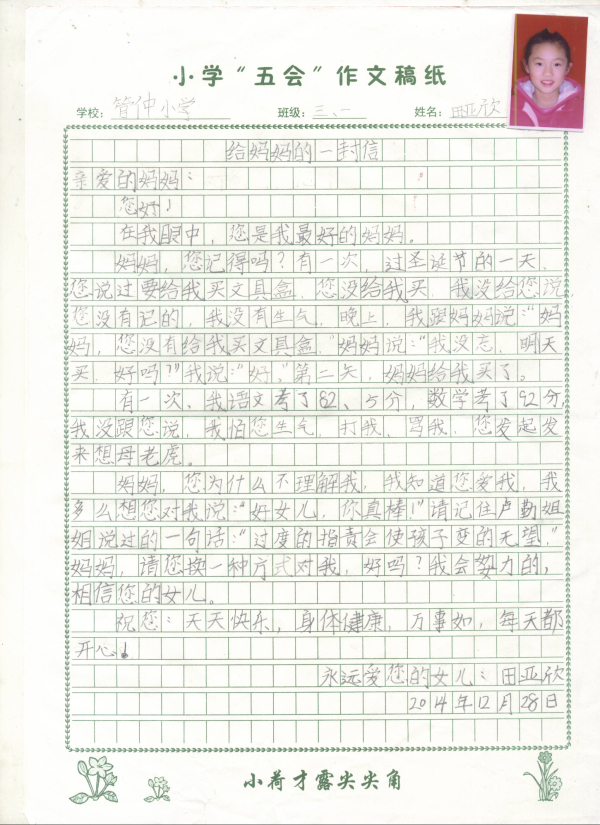 小学“五会”作文稿纸
学校：管仲小学 班级：三、一 姓名：田亚欣
给妈妈的一封信
亲爱的妈妈：
您好！
在我眼中，您是我最好的妈妈。
妈妈，您记得吗？有一次，过圣诞节的一天，
您说过要给我买文具盒，您没给我买，我没给您说，
您没有记的，我没有生气，晚上，我跟妈妈说：“妈
妈，您没有给我买文具盒。”妈妈说：“我没忘，明天
买，好吗？”我说：“好。”第二天，妈妈给我买了。
有一次，我语文考了82、5分，数学考了92分，
我没跟您说，我怕您生气，打我、骂我，您发起发
来想母老虎。
妈妈，您为什么不理解我，我知道您爱我，我
多么想您对我说：“好女儿，你真棒！”请记住卢勤姐
姐说过的一句话：“过度的指责会使孩子变的无望。”
妈妈，请您换一种方式对我，好吗？我会努力的，
相信您的女儿。
祝您：天天快乐，身体健康，万事如，每天都
开心！
永远爱您的女儿：田亚欣
2014年12月28日
小荷才露尖尖角